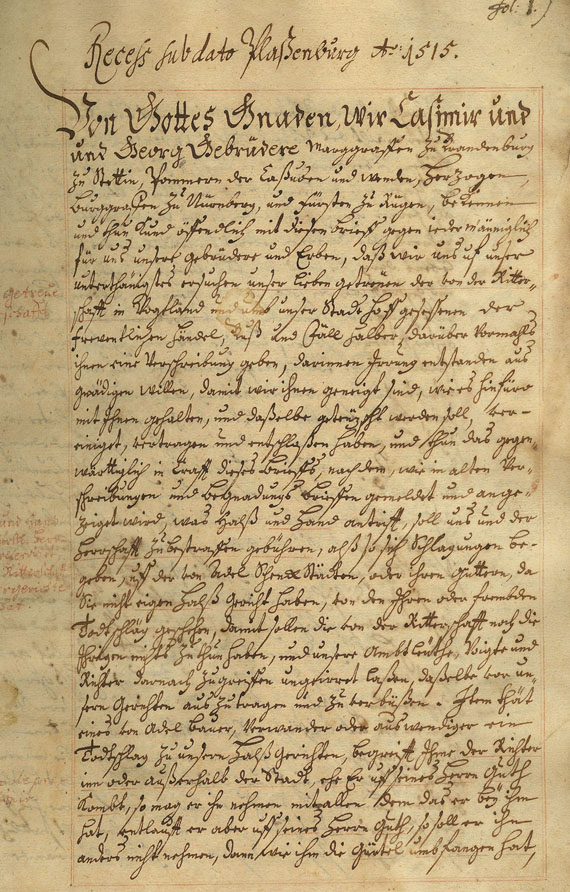 Fol: 1.)
Recess sub dato Plaßenburg Ao: 1515.
Von Gottes Gnaden, Wir Casimir und
und Georg Gebrüdere Marggraffen zu Brandenburg
zu Stettin, Pommern der Caßuben und wenden, Herzogen
Burggraffen zu Nürnberg, und Fürsten zu Rügen, bekennen
und thun kund öffendlich mit diesen brieff gegen ieder männiglich
für uns unsere gebrüdere und Erben, daß wir uns uf unser
unterthänigstes ersuchen unser lieben getreuen der von der Ritter-
schafft in Vogtland und umb unser Stadt Hoff gesessenen der
freventlichen händel, und Fäll halber, darüber Vormahls
ihnen eine Verschreibung geben, darinnen Irrung entstanden aus
gnädigen willen, damit wir ihnen geneigt sind, wie es hinfüro
mit Ihnen gehalten, und daßelbe gestrafft werden soll, ver-
einiget, vertragen und entschlaßen haben, und thun das gegen-
wärttiglich in Krafft dieses brieffs, nach dem, wie in alten Ver-
schreibungen und begnadungs brieffen gemeldet und ange-
zeiget wird, was Halß und Hand antrifft, soll uns und der
Herrschafft zu bestraffen gebühren, alß so sich Schlagungen be-
geben, uf der von Adel Stücken, oder ihren güttern, da
Sie nicht eigen Halß gericht haben, von den Ihren oder frembden
Todtschlag geschehen, damit sollen die von der Ritterschafft noch die
Ihrigen nichts zu thun haben, und unsere Ambtleuthe, Voigte und
Richter darnach zugreiffen ungeirret laßen, daßelbe vor un-
sern gerichten auszutragen und zu verbüßen. Item thät
eines von Adel bauer, verwander oder auswendiger ein
Todtschlag zu unsern Halß gerichten, begreifft Ihne der Richter
inn oder außerhalb der Stadt, ehe Er uf seines Herrn Guth
kombt, so mag er ihn nehmen mit allen dem das er bey ihm
hat, entlaufft er aber uff seines Herrn Guth, so soll er ihn
anders nicht nehmen, dann wie ihm die Gürtel umbfangen hat,